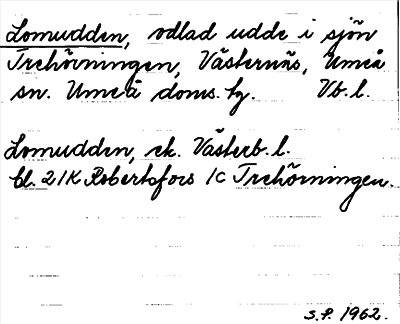 Lomudden, odlad udde i sjön
Trehörningen, Västernäs, Umeå
sn. Umeå doms. hg. Vb. l.
Lomudden, ek. Västerb. l.
bl. 21K Robertsfors 1c Trehörningen.
S.P. 1962.